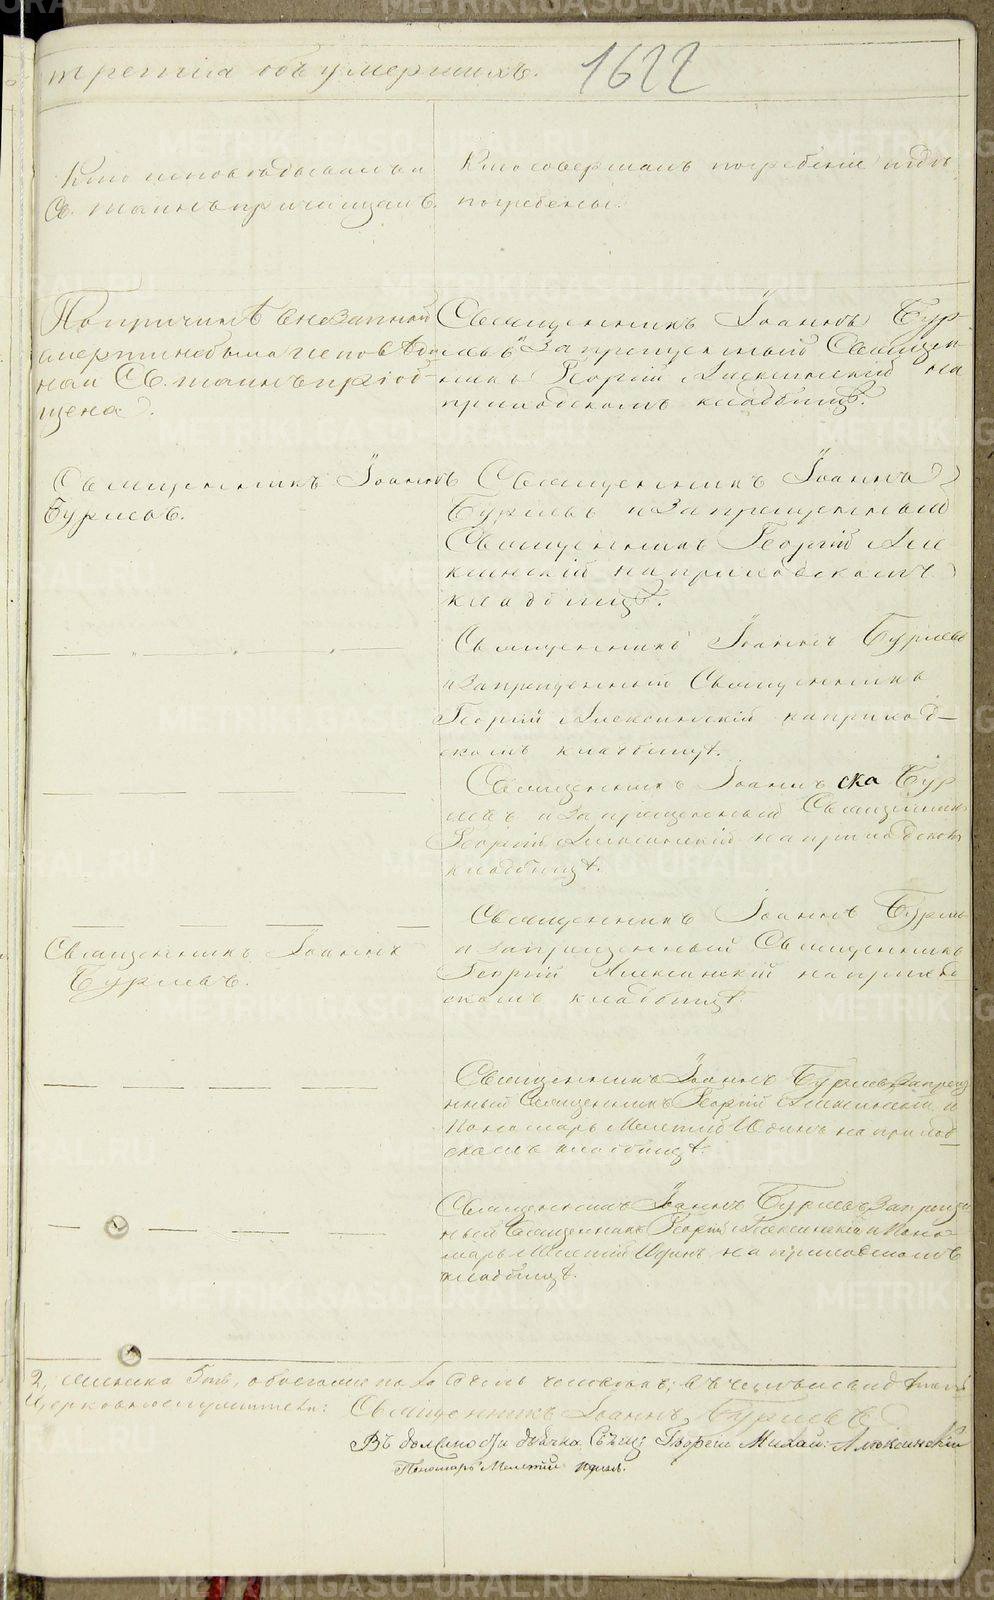 третія объ умершихъ. 1622
Кто исповѣдывалъ и
Св. таинъ пріобщалъ.
Кто совершалъ погребеніе и гдѣ
погребены.
По причинѣ внезапной
смерти не была исповѣда
на и Св. таинъ пріоб-
щена.
Священникъ Іоаннъ Бур
левъ и Запрещенный Священ
никъ Георгій Алексинскій на
приходскомъ кладбищѣ.
Священникъ Іоаннъ
Бурлевъ.
Священникъ Іоаннъ
Бурлевъ и Запрещенный
Священникъ Георгій Але
ксинскій на приходскомъ
кладбищѣ.
— „ — „ — „ —
Священникъ Іоаннъ Бурлевъ
и Запрещенный Священникъ
Георгій Алексинскій на приход-
скомъ кладбищѣ.
Священникъ Іоаннъ Бур
левъ и Запрещенный Священникъ
Георгій Алексинскій на приходскомъ
кладбищѣ.
Священникъ Іоаннъ
Бурлевъ.
Священникъ Іоаннъ Бурлевъ
и Запрещенный Священникъ
Георгій Алексинскій на приход
скомъ кладбищѣ
Священникъ Іоаннъ Бурлевъ, Запрещ
нный Священникъ Георгій Алексинскій и
Пономарь Мелетій Юдинъ на приход
скомъ кладбищѣ.
Священникъ Іоаннъ Бурлевъ, Запрещен
ный Священникъ Георгій Алексинскій и Поно
марь Мелетій Юдинъ, на приходскомъ
кладбищѣ.
2, женска 5ть, обоего пола семь человѣкъ; въ чемъ свидѣтел
Церковнослужители: Священникъ Іоаннъ Бурлевъ
Въ должности дьячка Свящ: Георгій Михай: Алексинскій
Пономарь Мелетій Юдинъ.
METRIKI.GASO-URAL.RU